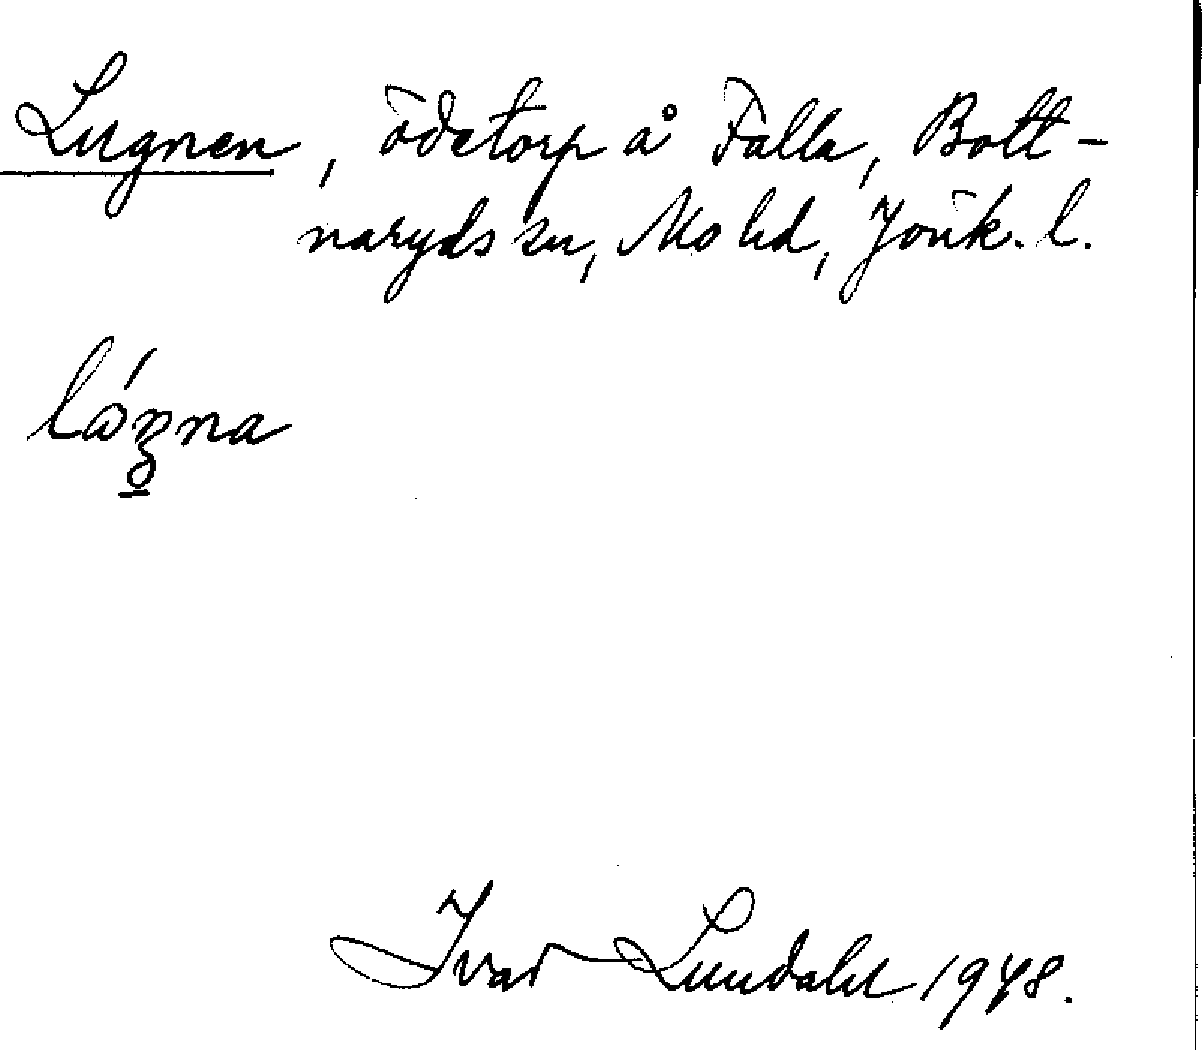 Lugnen, ödetorp å Falla, Bott-
naryds sn, Mo hd, Jönk. l.
Ivar Lundahl 1948.